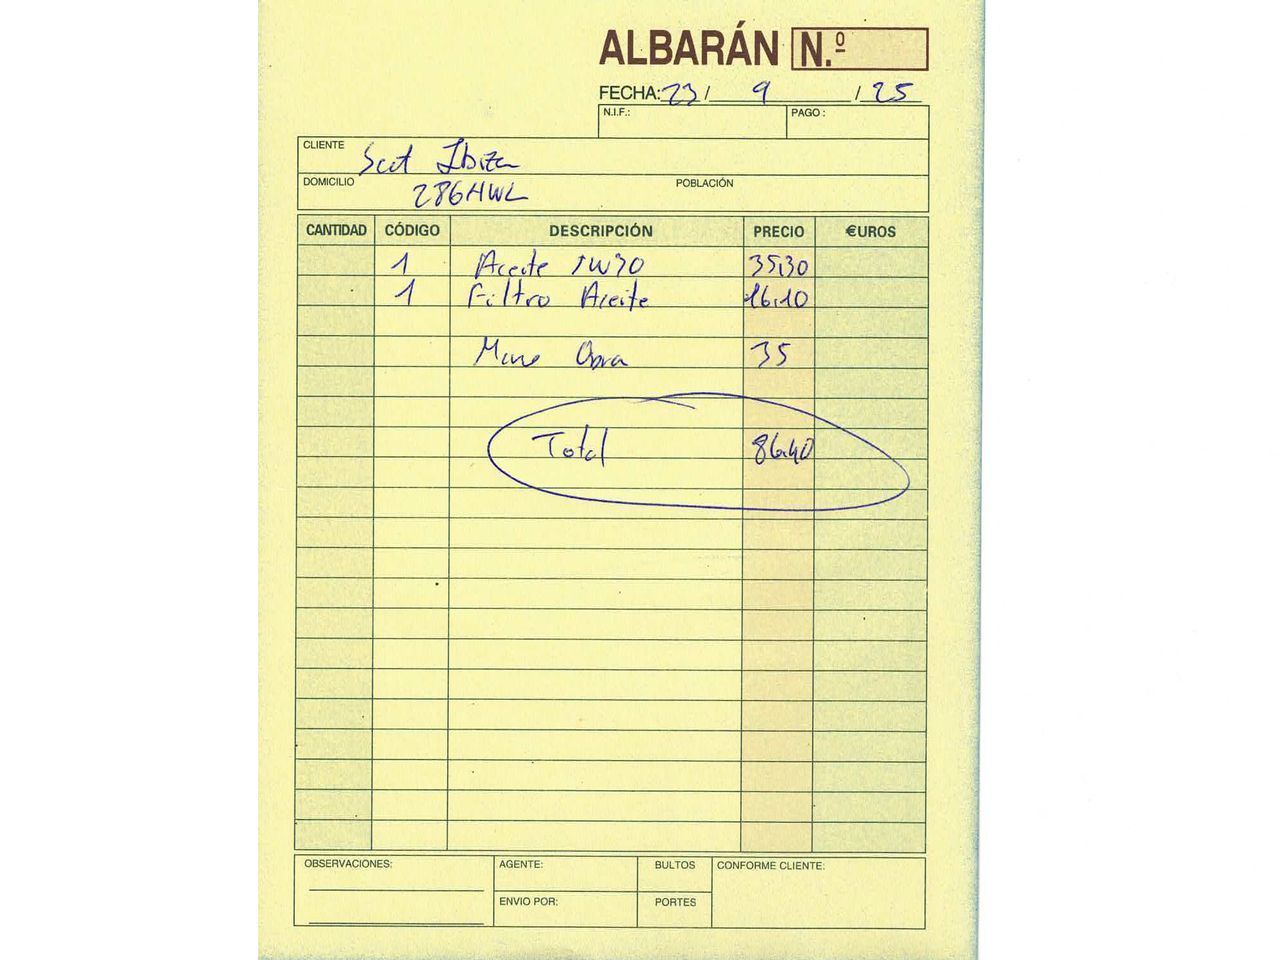 ALBARÁN N.º
FECHA: 23 / 9 / 25
N.I.F.: PAGO:
CLIENTE Seat Ibiza
DOMICILIO 286HWL POBLACIÓN
CANTIDAD CÓDIGO DESCRIPCIÓN PRECIO €UROS
1 Aceite 5W30 35,30
1 Filtro Aceite 16,10
Mano Obra 35
Total 86,40
OBSERVACIONES: AGENTE: BULTOS CONFORME CLIENTE:
ENVIO POR: PORTES